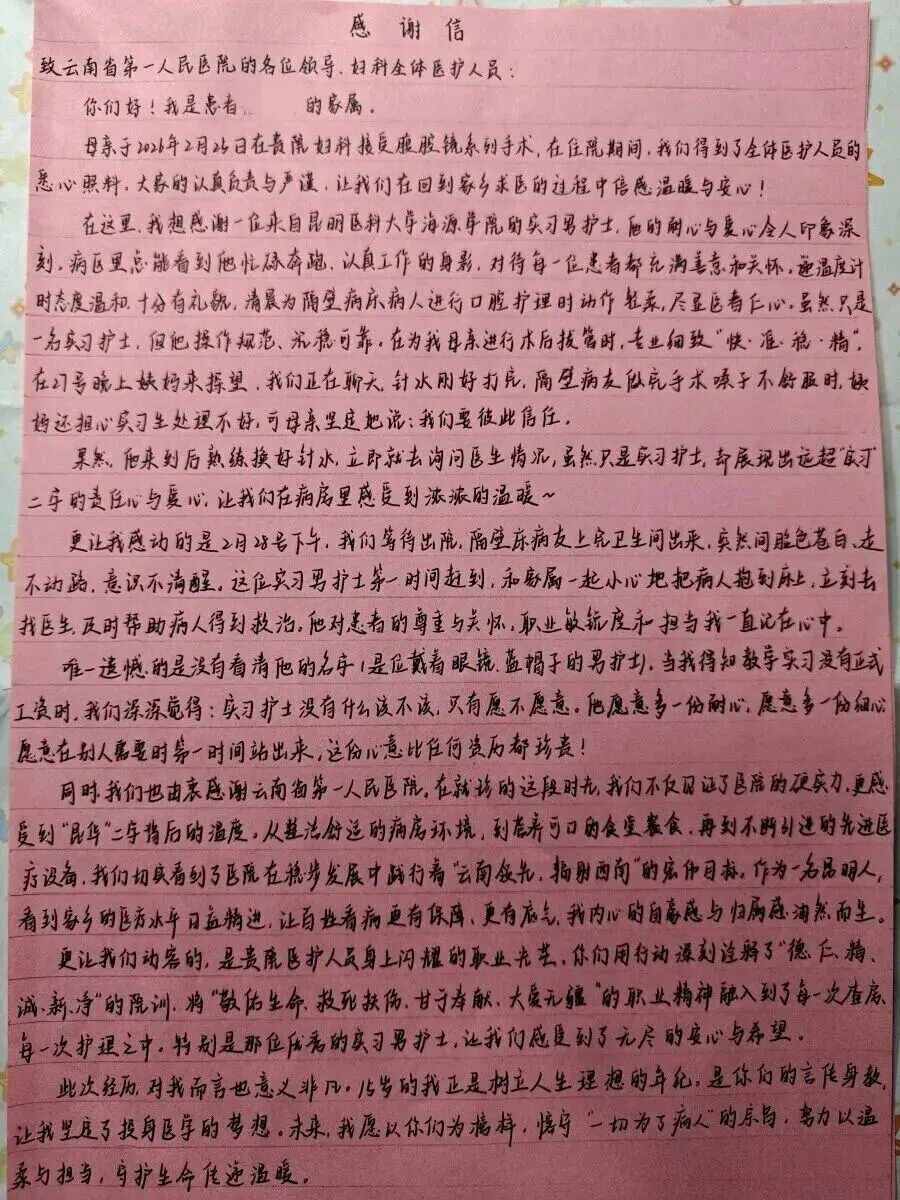 感谢信
致云南省第一人民医院的各位领导、妇科全体医护人员：
你们好！我是患者 的家属。
母亲于2026年2月26日在贵院妇科接受腹腔镜系列手术，在住院期间，我们得到了全体医护人员的
悉心照料，大家的认真负责与严谨，让我们在回到家乡求医的过程中倍感温暖与安心！
在这里，我想感谢一位来自昆明医科大学海源学院的实习男护士，他的耐心与爱心令人印象深
刻。病区里总能看到他忙碌奔跑、认真工作的身影，对待每一位患者都充满善意和关怀，递温度计
时态度温和、十分有礼貌，清晨为隔壁病床病人进行口腔护理时动作轻柔，尽显医者仁心。虽然只是
一名实习护士，但他操作规范、沉稳可靠。在为我母亲进行术后拔管时，专业细致“快·准·稳·精”，
在27号晚上姨妈来探望，我们正在聊天，针水刚好打完，隔壁病友做完手术嗓子不舒服时，姨
妈还担心实习生处理不好，可母亲坚定地说：我们要彼此信任。
果然，他来到后熟练换好针水，立即就去询问医生情况，虽然只是实习护士，却展现出远超“实习”
二字的责任心与爱心，让我们在病房里感受到浓浓的温暖~
更让我感动的是2月28号下午，我们等待出院，隔壁床病友上完卫生间出来，突然间脸色苍白、走
不动路，意识不清醒。这位实习男护士第一时间赶到，和家属一起小心地把病人抱到床上，立刻去
找医生，及时帮助病人得到救治。他对患者的尊重与关怀，职业敏锐度和担当我一直记在心中。
唯一遗憾的是没有看清他的名字（是位戴着眼镜、蓝帽子的男护士），当我得知教学实习没有正式
工资时，我们深深觉得：实习护士没有什么该不该，只有愿不愿意。他愿意多一份耐心，愿意多一份细心
愿意在别人需要时第一时间站出来，这份心意比任何资历都珍贵！
同时，我们也由衷感谢云南省第一人民医院。在就诊的这段时光，我们不仅见证了医院的硬实力，更感
受到“昆华”二字背后的温度。从整洁舒适的病房环境，到营养可口的食堂餐食，再到不断引进的先进医
疗设备，我们切实看到了医院在稳步发展中践行着“云南领先，辐射西南”的宏伟目标。作为一名昆明人，
看到家乡的医疗水平日益精进，让百姓看病更有保障、更有底气，我内心的自豪感与归属感油然而生。
更让我们动容的，是贵院医护人员身上闪耀的职业光芒。你们用行动深刻诠释了“德、仁、精、
诚、新、净”的院训，将“敬佑生命、救死扶伤、甘于奉献、大爱无疆”的职业精神融入到了每一次查房、
每一次护理之中。特别是那位优秀的实习男护士，让我们感受到了无尽的安心与希望。
此次经历，对我而言也意义非凡。15岁的我正是树立人生理想的年纪，是你们的言传身教，
让我坚定了投身医学的梦想。未来，我愿以你们为榜样，恪守“一切为了病人”的宗旨，努力以温
柔与担当，守护生命传递温暖。